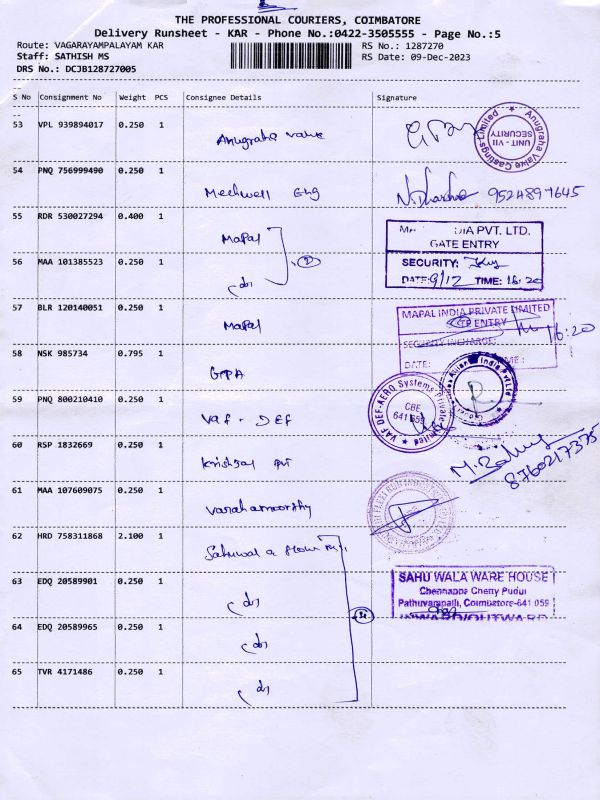 THE PROFESSIONAL COURIERS, COIMBATORE
Delivery Runsheet - KAR - Phone No.:0422-3505555 - Page No.:5
Route: VAGARAYAMPALAYAM KAR RS No.: 1287270
Staff: SATHISH MS RS Date: 09-Dec-2023
DRS No.: DCJB128727005
S No Consignment No Weight PCS Consignee Details Signature
53 VPL 939894017 0.250 1 Anugraha Value
Anugraha Valve Castings Limited UNIT - VII SECURITY
54 PNQ 756999490 0.250 1 Mechwell Eng 9524897645
55 RDR 530027294 0.400 1 Mapal
DIA PVT. LTD.
GATE ENTRY
SECURITY:
DATE: 9/12 TIME: 16:20
56 MAA 101385523 0.250 1
57 BLR 120140051 0.250 1 Mapal
MAPAL INDIA PRIVATE LIMITED
ENTRY
SECURITY INCHARGE: 16:20
DATE:
58 NSK 985734 0.795 1
India Pvt Ltd
59 PNQ 800210410 0.250 1 VAF - DEF
VAF DEF-AERO Systems Private Limited CBE 641 659
60 RSP 1832669 0.250 1 pvt
8760217375
61 MAA 107609075 0.250 1 Varahamoorthy
62 HRD 758311868 2.100 1
SAHU WALA WARE HOUSE
Chennappa Chetty Pudur
Pathuvampalli, Coimbatore-641 059
INWARD/OUTWARD
63 EDQ 20589901 0.250 1
64 EDQ 20589965 0.250 1
65 TVR 4171486 0.250 1